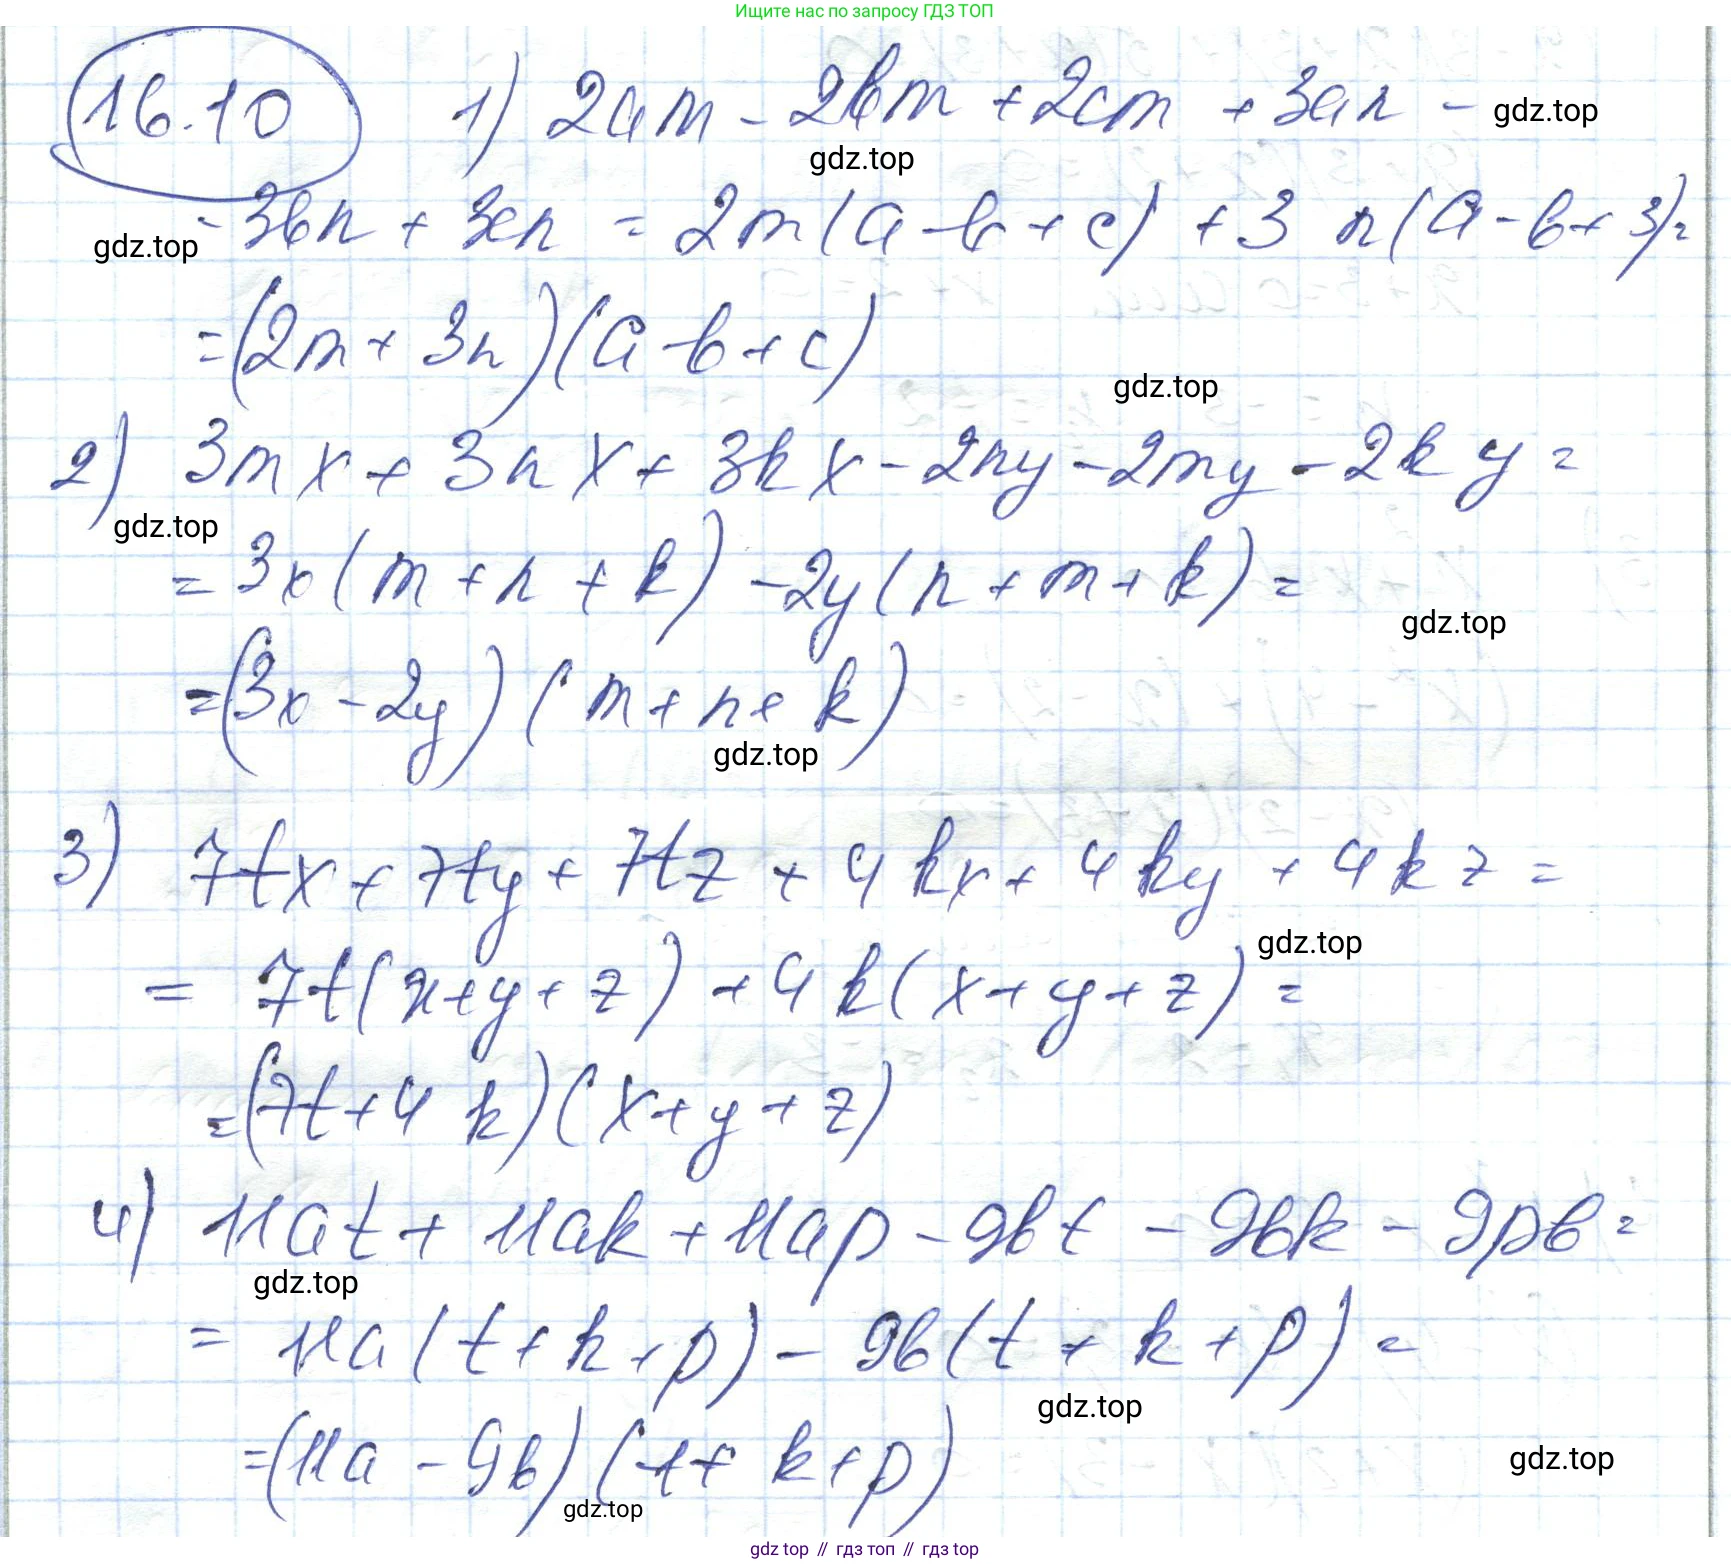 Ищите нас по запросу ГДЗ ТОП
16.10 1) 2am - 2bm + 2cm + 3an -
gdz.top
gdz.top
- 3bn + 3cn = 2m(a - b + c) + 3 n(a - b + 3) =
gdz.top
= (2m + 3n)(a - b + c)
gdz.top
2) 3mx + 3nx + 3kx - 2ny - 2my - 2ky =
gdz.top
= 3x(m + n + k) - 2y(n + m + k) =
gdz.top
= (3x - 2y)(m + n + k)
gdz.top
3) 7tx + 7ty + 7tz + 4kx + 4ky + 4kz =
gdz.top
= 7t(x + y + z) + 4k(x + y + z) =
= (7t + 4k)(x + y + z)
4) 11at + 11ak + 11ap - 9bt - 9bk - 9pb =
gdz.top
= 11a(t + k + p) - 9b(t + k + p) =
gdz.top
= (11a - 9b)(t + k + p)
gdz.top
gdz.top
gdz top // гдз топ // гдз top